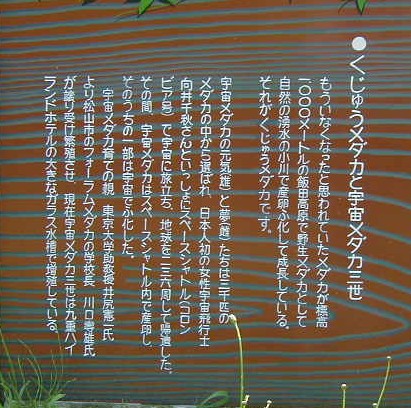 ●くじゅうメダカと宇宙メダカ三世
もういなくなったと思われていたメダカが標高
一〇〇〇メートルの飯田高原で野生メダカとして
自然の湧水の小川で産卵ふ化して成長している。
それがくじゅうメダカです。
宇宙メダカの元気(雄)と夢(雌)たちは三千匹の
メダカの中から選ばれ、日本人初の女性宇宙飛行士
向井千秋さんといっしょにスペースシャトル(コロン
ビア号)で宇宙に旅立ち、地球を二三六周して帰還した。
その間、宇宙メダカはスペースシャトル内で産卵し
そのうちの一部は宇宙でふ化した。
宇宙メダカ育ての親、東京大学助教授井尻憲一氏
より松山市のフォーラムメダカの学校長、川口壽雄氏
が譲り受け繁殖させ、現在宇宙メダカ三世は九重ハイ
ランドホテルの大きなガラス水槽で増殖している。